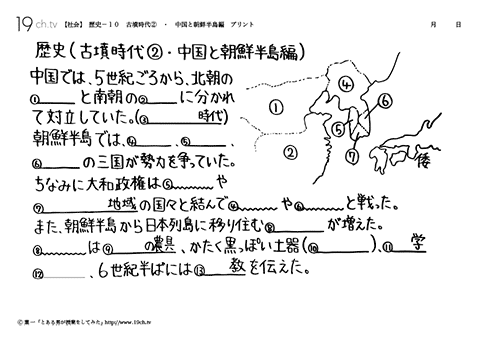 19ch.tv 【社会】 歴史－10 古墳時代② ・ 中国と朝鮮半島編 プリント 月 日
歴史(古墳時代②・中国と朝鮮半島編)
中国では、5世紀ごろから、北朝の
① と南朝の② に分かれ
て対立していた。(③ 時代)
朝鮮半島では、④ 、⑤ 、
⑥ の三国が勢力を争っていた。
ちなみに大和政権は⑤ や
⑦ 地域の国々と結んで④ や⑥ と戦った。
また、朝鮮半島から日本列島に移り住む⑧ が増えた。
⑧ は⑨ の農具、かたく黒っぽい土器(⑩ )、⑪ 学
⑫ 、6世紀半ばには⑬ 教を伝えた。
①
②
④
⑤
⑥
⑦
倭
Ⓒ 葉一「とある男が授業をしてみた」http://www.19ch.tv